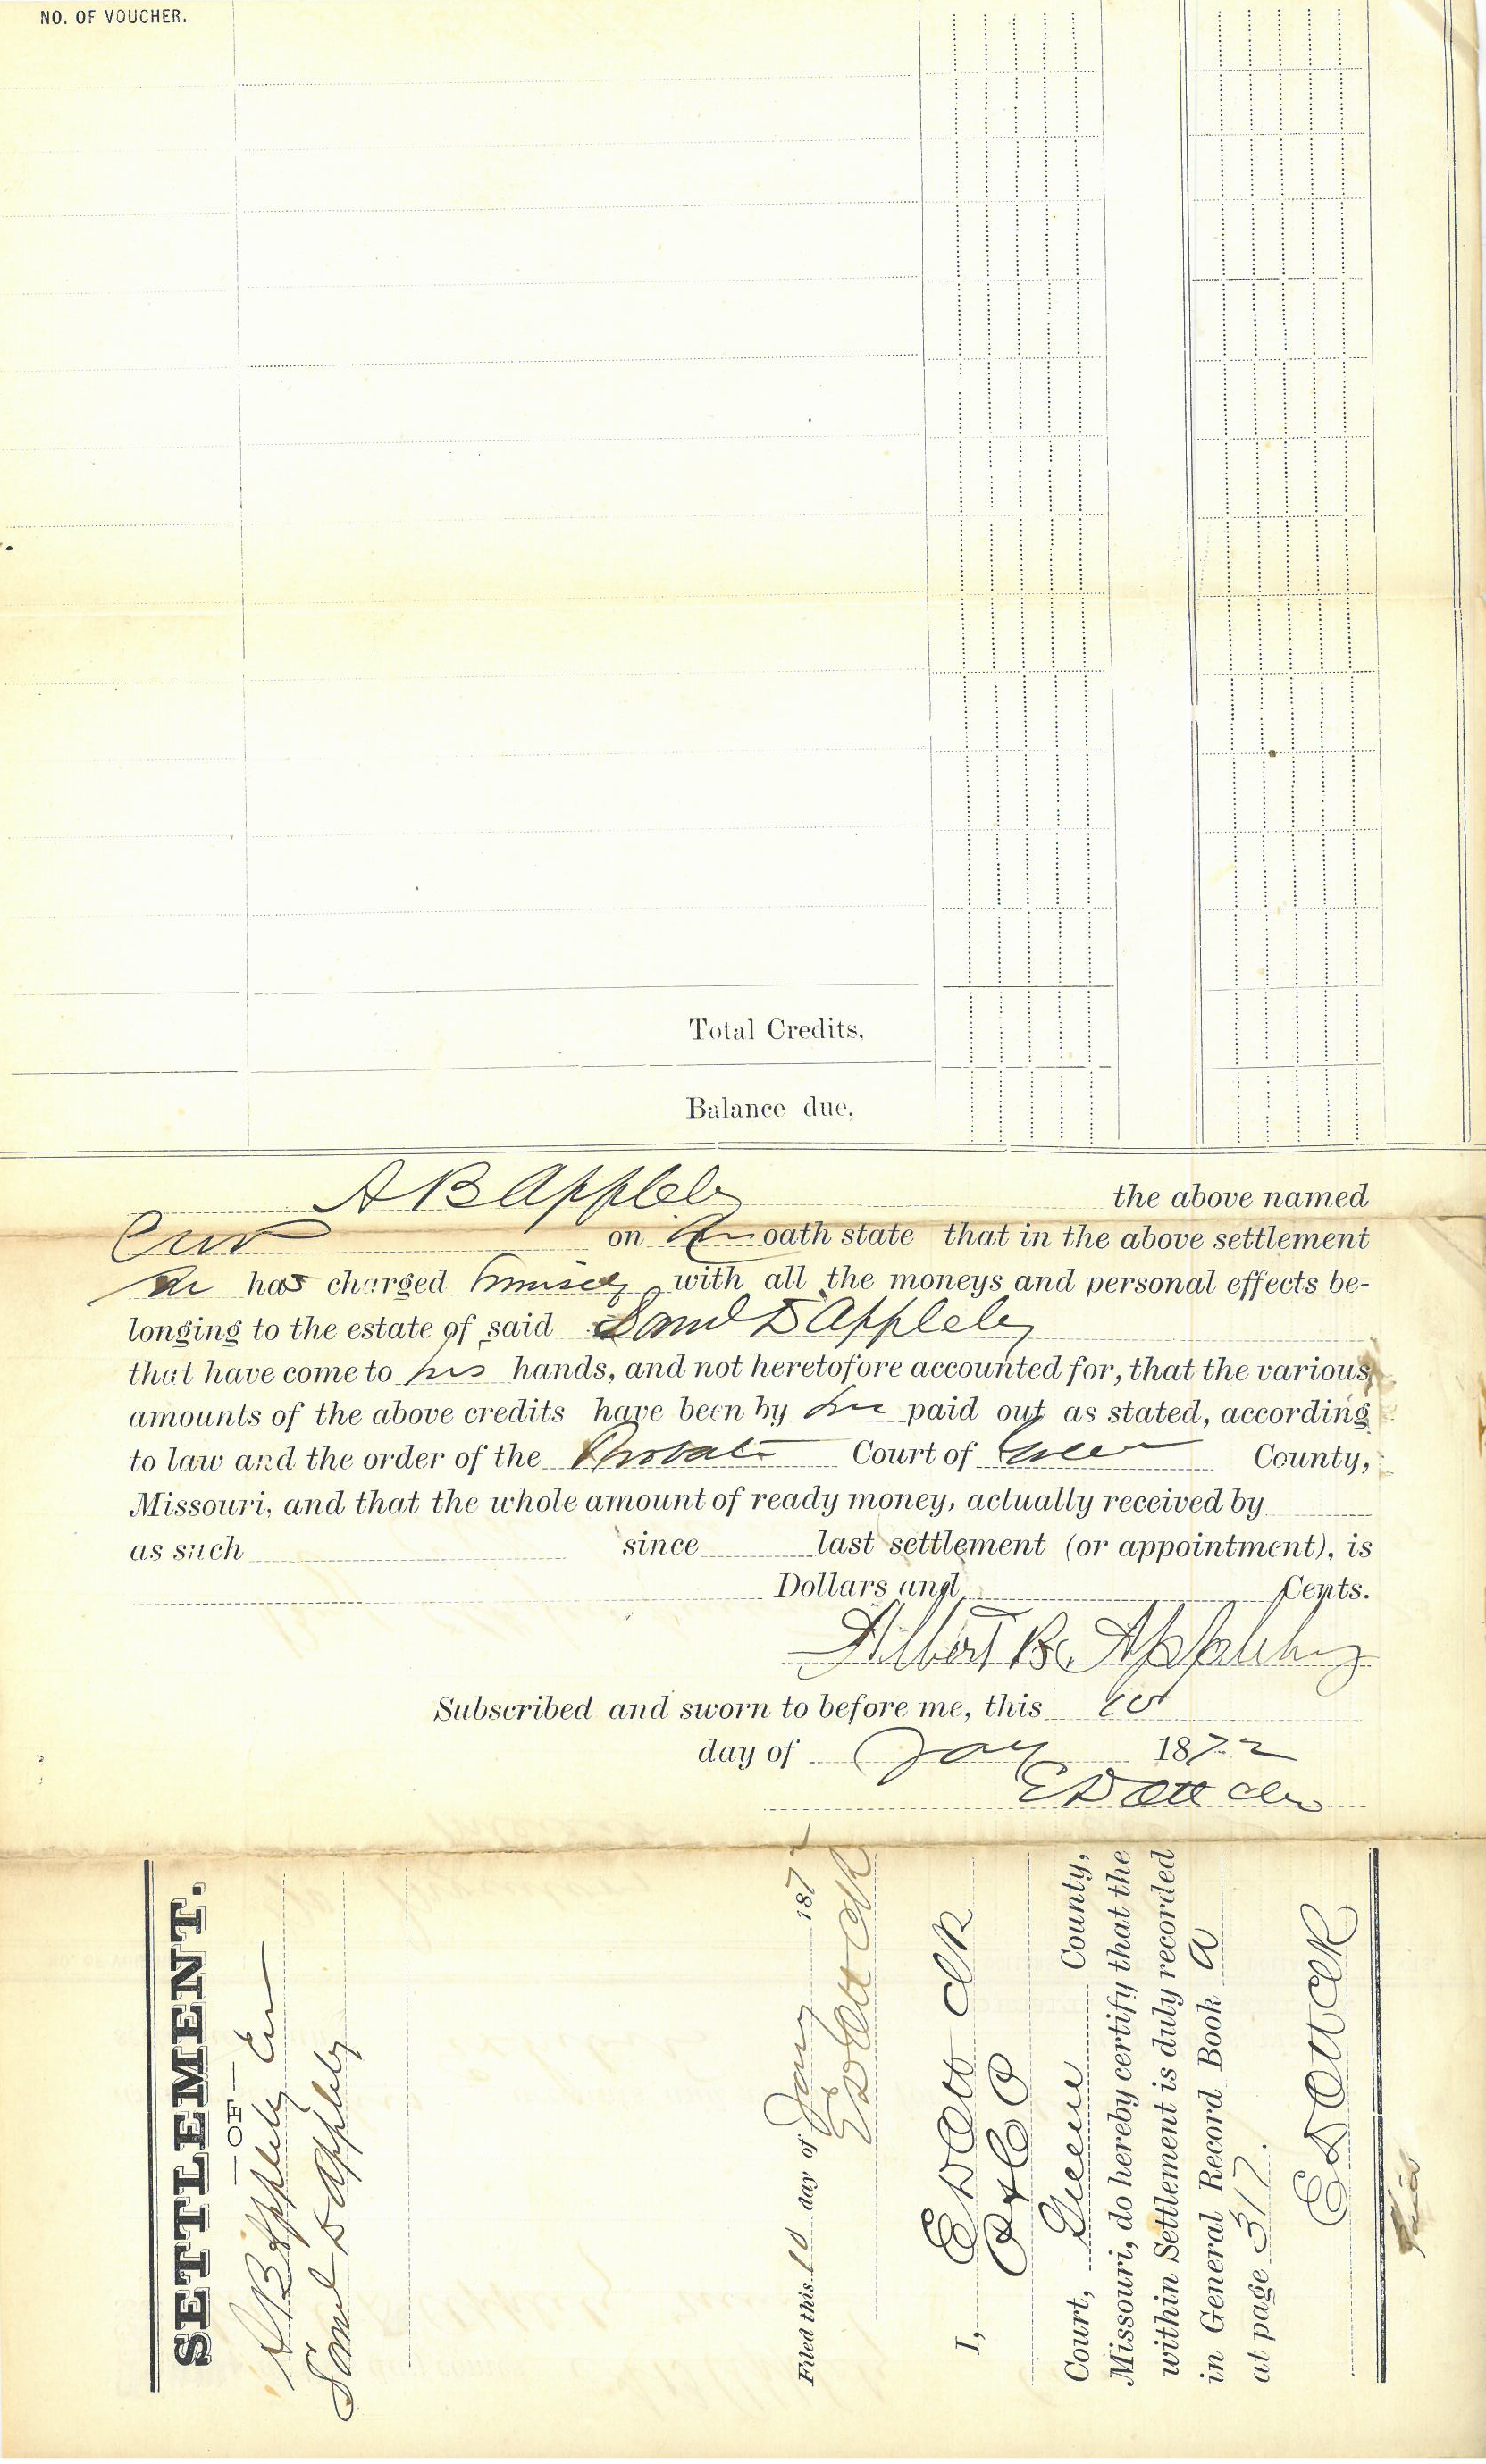 NO. OF VOUCHER.
Total Credits,
Balance due,
A B Appleby the above named
Cur on his oath state that in the above settlement
he has charged himself with all the moneys and personal effects be-
longing to the estate of said Saml D Appleby
that have come to his hands, and not heretofore accounted for, that the various
amounts of the above credits have been by him paid out as stated, according
to law and the order of the Probate Court of Greene County,
Missouri, and that the whole amount of ready money, actually received by
as such since last settlement (or appointment), is
Dollars and Cents.
Albert B. Appleby
Subscribed and sworn to before me, this 10
day of Jany 1872
E D Ott Clk
SETTLEMENT.
—OF—
A B Appleby Cur
Saml D Appleby
Filed this 10 day of Jany 1872
E D Ott Clk
I, E D Ott Clk
Court, Greene County,
Missouri, do hereby certify that the
within Settlement is duly recorded
in General Record Book A
at page 317.
E D Ott Clk
Paid